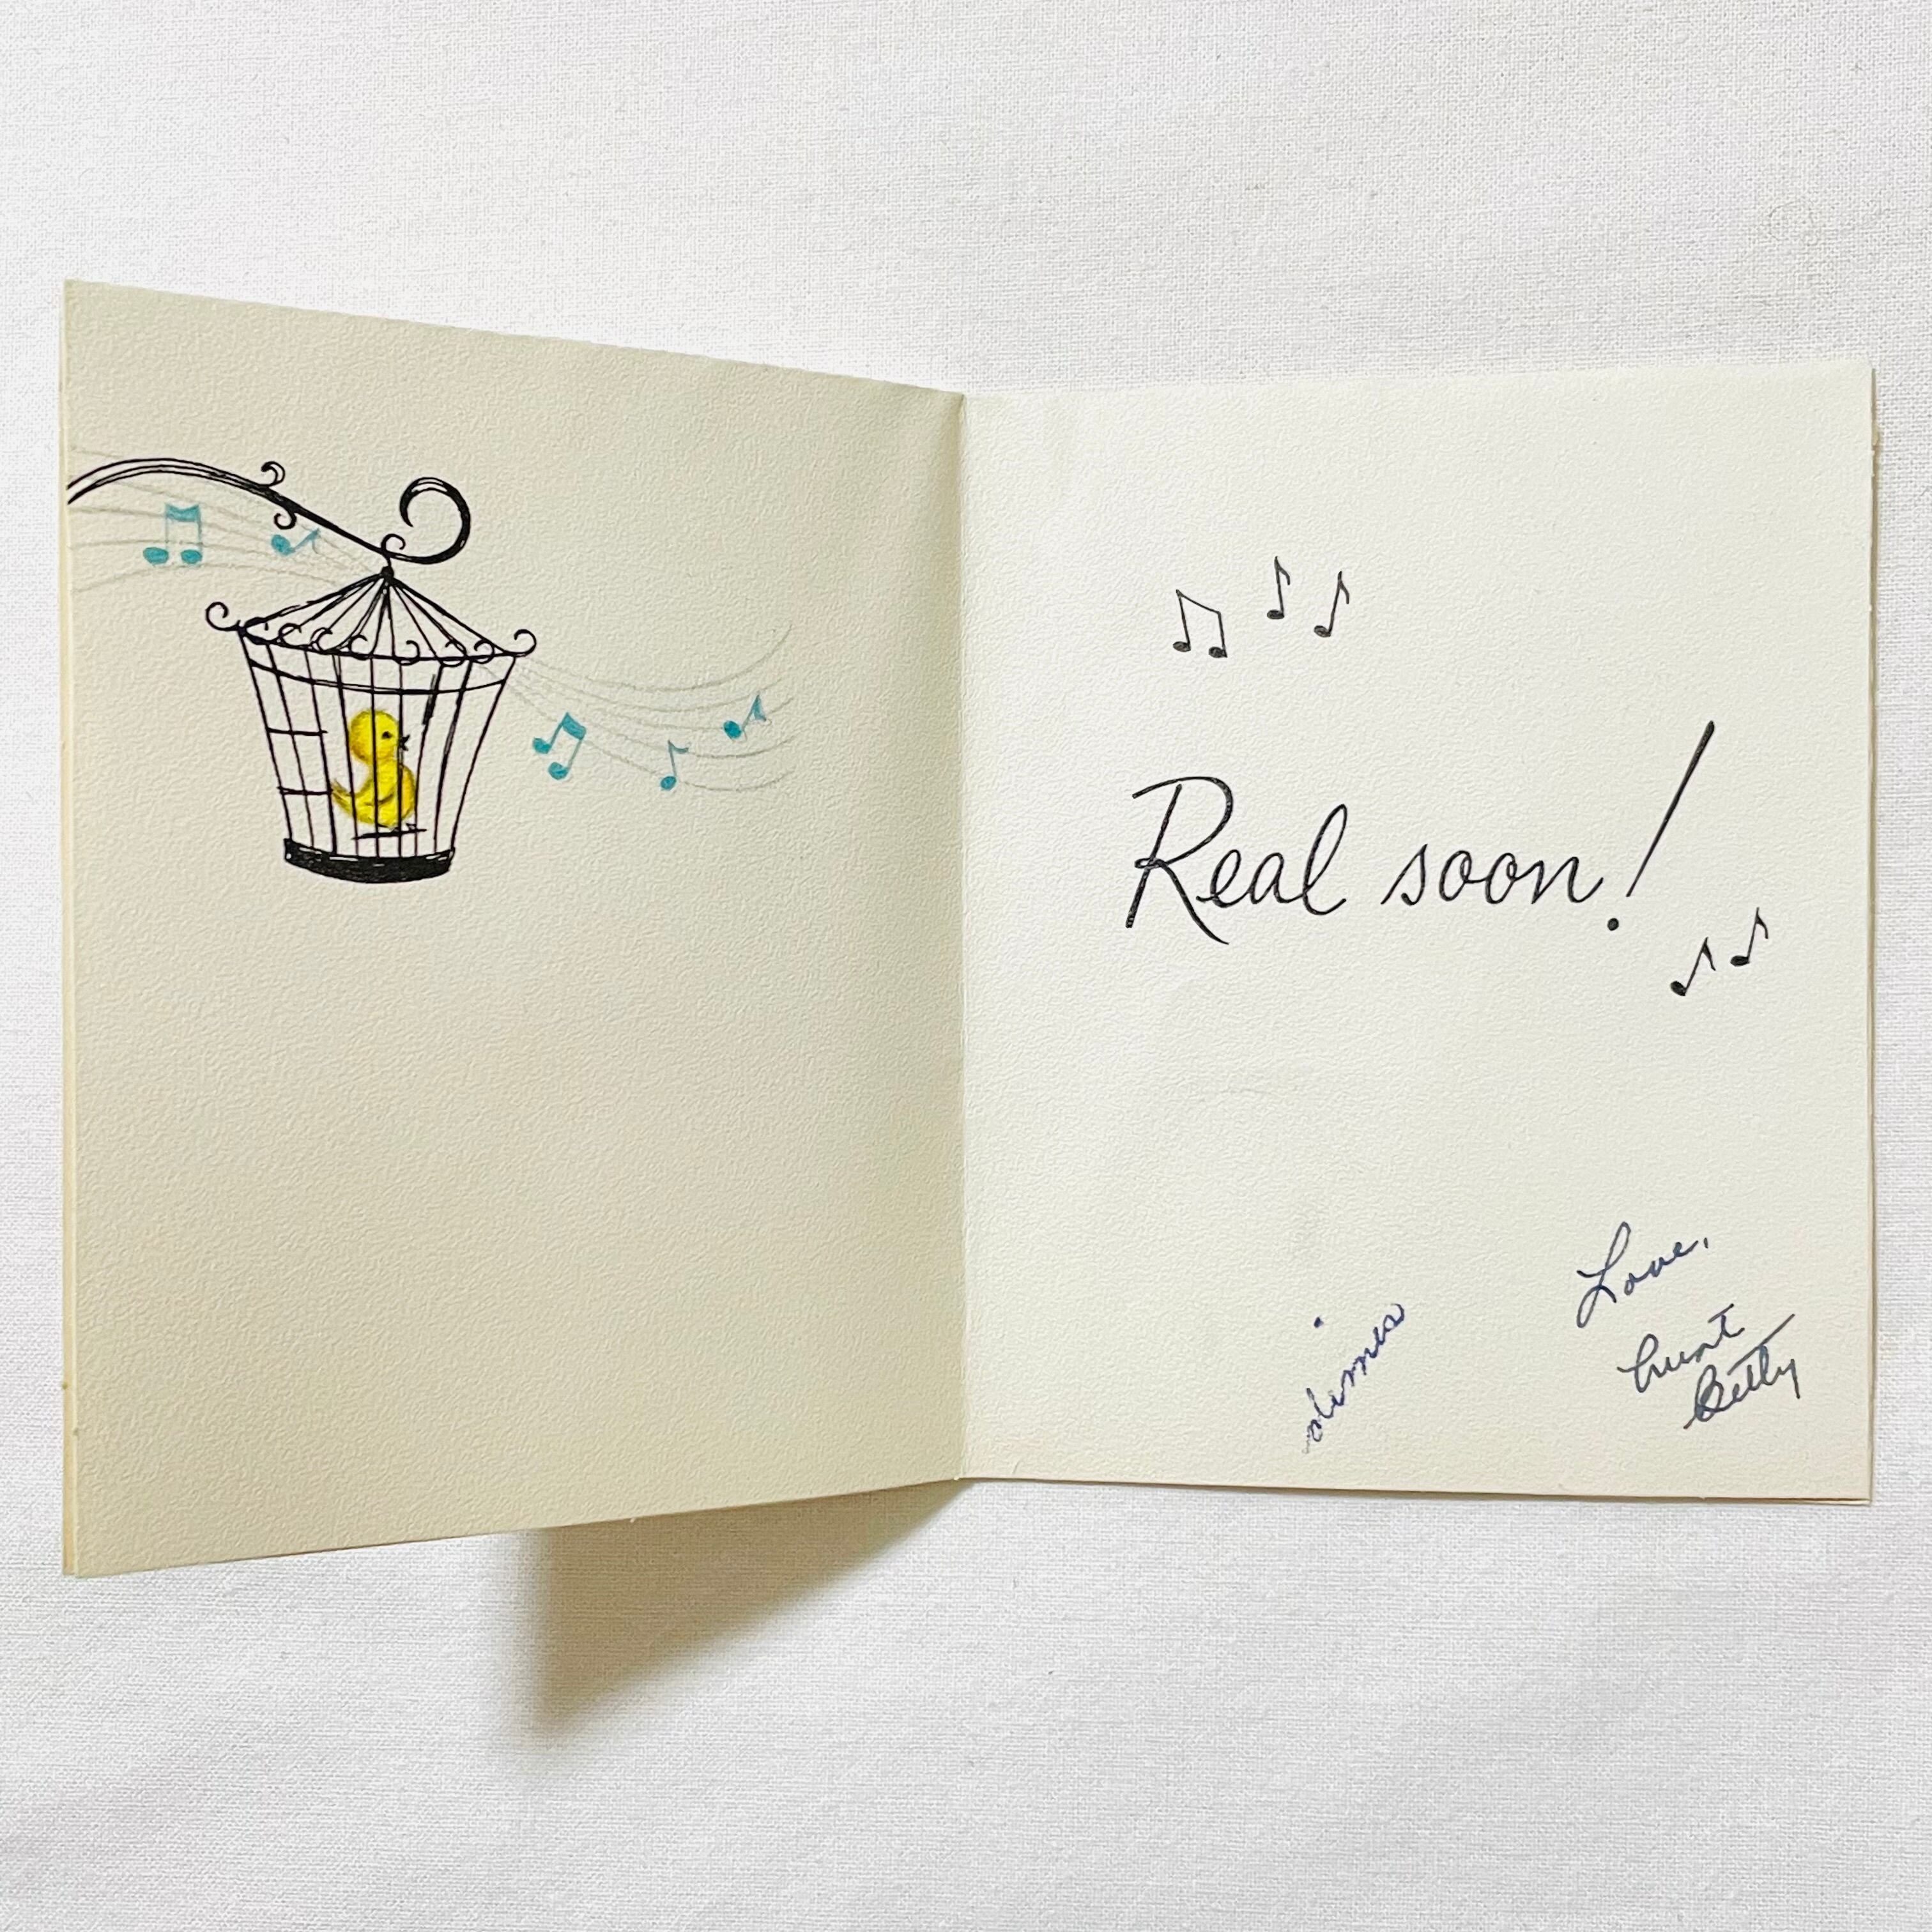 Real soon!
Love,
Aunt
Betty
dimes